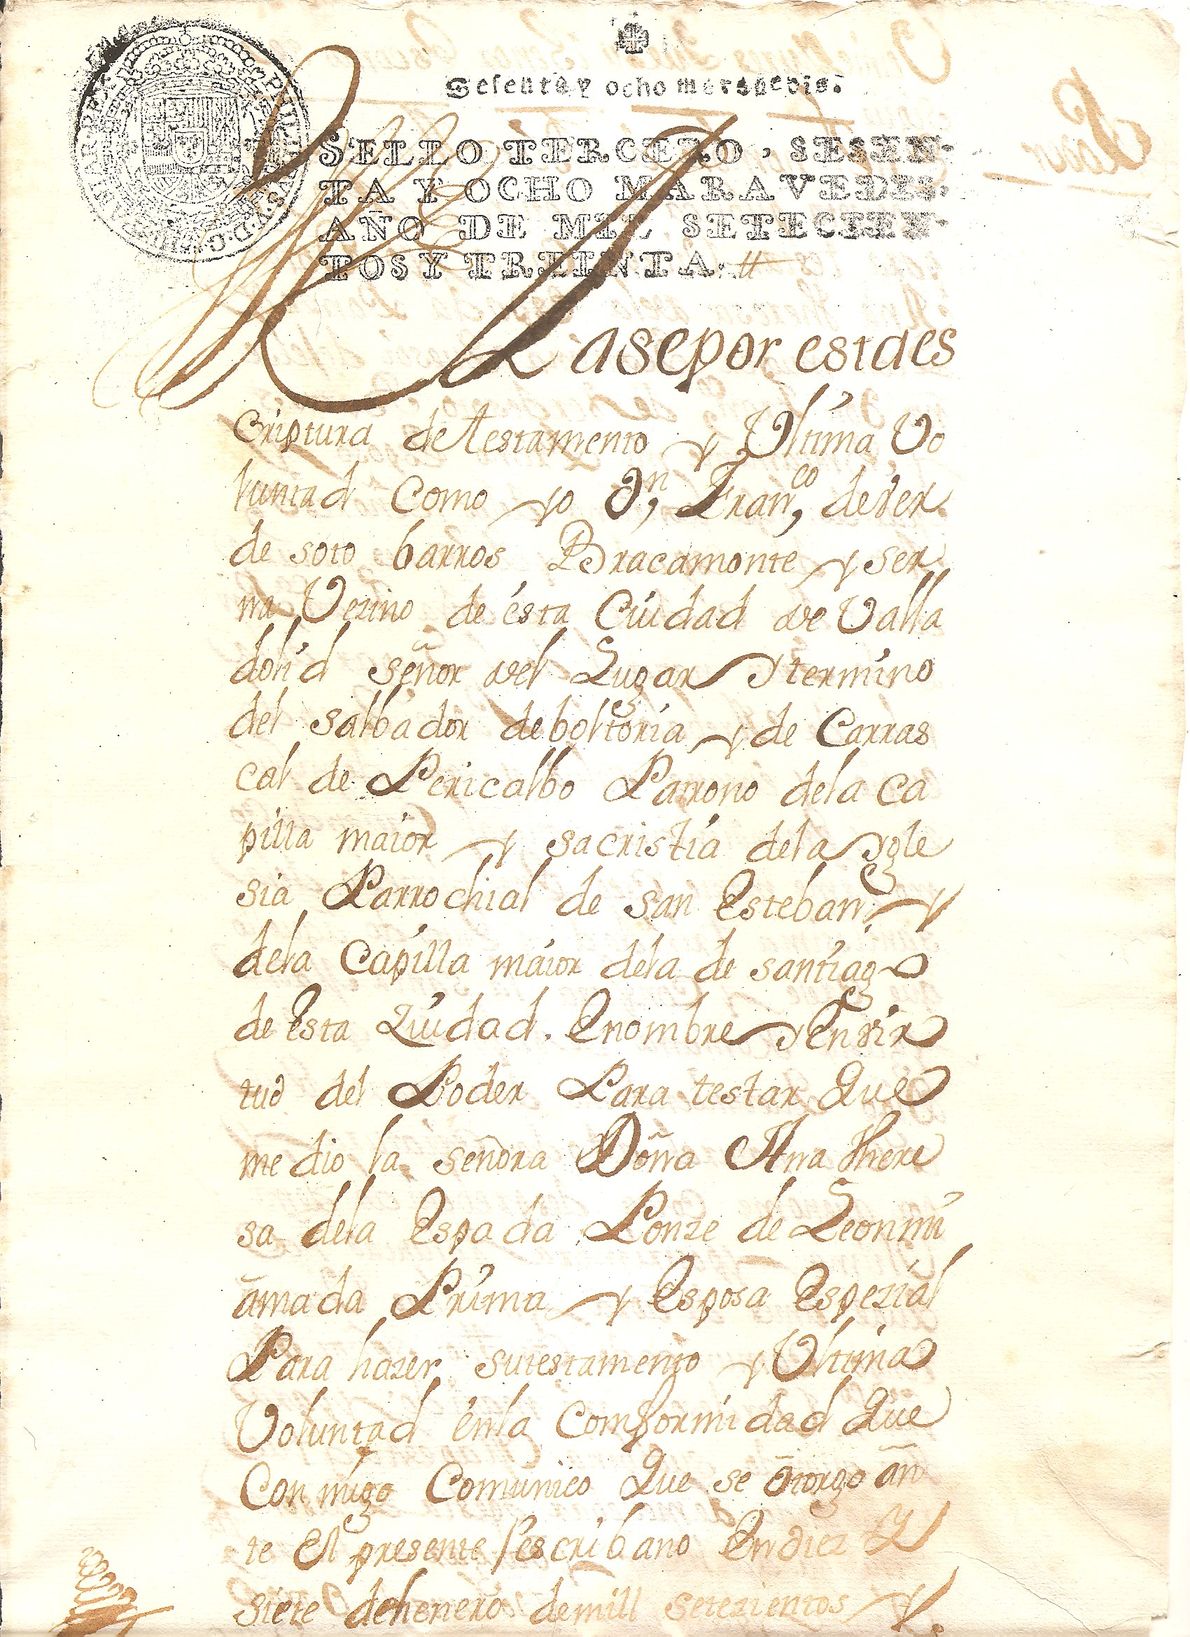 Sesenta y ocho maravedis.
SELLO TERCERO, SESEN-
TA Y OCHO MARAVEDIS,
AÑO DE MIL SETECIEN-
TOS Y TREINTA.
asepor estaes
Criptura de testamento y Ultima Vo
luntad Como yo Dn, Franco, dever
de soto barros Bracamonte y ser
na Vezino de ésta Ciudad de Valla
dolid señor del Lugar y termino
del Salbador de boltoria y de Carras
cal de Pericalbo Patrono dela ca
pilla maior y sacristia dela ygle
sia Parrochial de san Esteban y
dela Capilla maior dela de santiago
de Esta Ziudad. Enombre y Envir
tud del Poder Para testar Que
me dio la señora Doña Ana There
sa dela Espada Ponze de Leon mi
amada Prima y Esposa Espezial
Para hazer sutestamento y Ultima
Voluntad énla Comformidad Que
Con migo Comunico Que se otorgo an
te El presente escribano En diez y
siete de henero de mill setezientos y